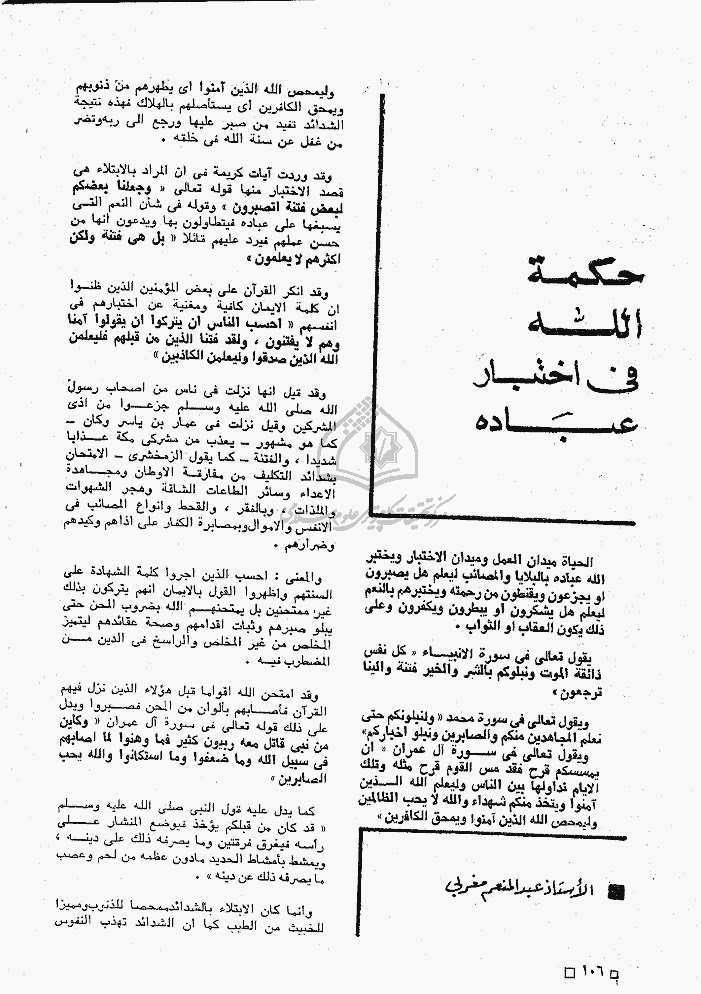 حكمة
الله
فى اختبار
عباده
الحياة ميدان العمل وميدان الاختبار ويختبر
الله عباده بالبلايا والمصائب ليعلم هل يصبرون
او يجزعون ويقنطون من رحمته ويختبرهم بالنعم
ليعلم هل يشكرون او يبطرون ويكفرون وعلى
ذلك يكون العقاب او الثواب .
يقول تعالى فى سورة الانبيـــاء « كل نفس
ذائقة الموت ونبلوكم بالشر والخير فتنة والينا
ترجعون »
ويقول تعالى فى سورة محمد « ولنبلونكم حتى
نعلم المجاهدين منكم والصابرين ونبلو اخباركم»
ويقول تعالى فى ســـورة آل عمران « ان
يمسسكم قرح فقد مس القوم قرح مثله وتلك
الايام نداولها بين الناس وليعلم الله الـــذين
آمنوا ويتخذ منكم شهداء والله لا يحب الظالمين
وليمحص الله الذين آمنوا ويمحق الكافرين »
الأستاذ عبد المنعم مغربي
وليمحص الله الذين آمنوا اى يطهرهم من ذنوبهم
ويمحق الكافرين اى يستأصلهم بالهلاك فهذه نتيجة
الشدائد تفيد من صبر عليها ورجع الى ربه وتضر
من غفل عن سنة الله فى خلقه .
وقد وردت آيات كريمة فى ان المراد بالابتلاء هى
قصد الاختبار منها قوله تعالى « وجعلنا بعضكم
لبعض فتنة اتصبرون » وقوله فى شأن النعم التـى
يسبغها على عباده فيتطاولون بها ويدعون انها من
حسن عملهم فيرد عليهم قائلا « بل هى فتنة ولكن
اكثرهم لا يعلمون »
وقد انكر القرآن على بعض المؤمنين الذين ظنـوا
ان كلمة الايمان كافية ومغنية عن اختبارهم فى
انفسهم « احسب الناس ان يتركوا ان يقولوا آمنا
وهم لا يفتنون ، ولقد فتنا الذين من قبلهم فليعلمن
الله الذين صدقوا وليعلمن الكاذبين »
وقد قيل انها نزلت فى ناس من اصحاب رسول
الله صلى الله عليه وســـلم جزعـــوا من اذى
المشركين وقيل نزلت فى عمار بن ياسر وكان ــ
كما هو مشهور ــ يعذب من مشركى مكة عـــذابا
شديدا ، والفتنة ــ كما يقول الزمخشرى ــ الامتحان
بشدائد التكليف من مفارقة الاوطان ومجـــاهدة
الاعداء وسائر الطاعات الشاقة وهجر الشهوات
والملذات ، وبالفقر ، والقحط وانواع المصائب فى
الانفس والاموال وبمصابرة الكفار على اذاهم وكيدهم
وضرارهم .
والمعنى : احسب الذين اجروا كلمة الشهادة على
السنتهم واظهروا القول بالايمان انهم يتركون بذلك
غير ممتحنين بل يمتحنهـــم الله بضروب المحن حتى
يبلو صبرهم وثبات اقدامهم وصحة عقائدهم ليتميز
المخلص من غير المخلص والراسخ فى الدين مـــن
المضطرب فيـه .
وقد امتحن الله اقواما قبل هؤلاء الذين نزل فيهم
القرآن فأصـابهم بألوان من المحن فصـــبروا ويدل
على ذلك قوله تعالى فى سورة آل عمران « وكاين
من نبى قاتل معه ربيون كثير فما وهنوا لما اصابهم
فى سبيل الله وما ضعفوا وما استكانوا والله يحب
الصابرين »
كما يدل عليه قول النبى صلى الله عليه وســـلم
« قد كان من قبلكم يؤخذ فيوضع المنشار عـــلى
رأسه فيفرق فرقتين وما يصرفه ذلك على دينـــه ،
ويمشط بأمشاط الحديد مادون عظمه من لحم وعصب
ما يصرفه ذلك عن دينه » .
وانما كان الابتلاء بالشدائد ممحصا للذنوب ومميزا
للخبيث من الطيب كما ان الشدائد تهذب النفوس
١٠٦